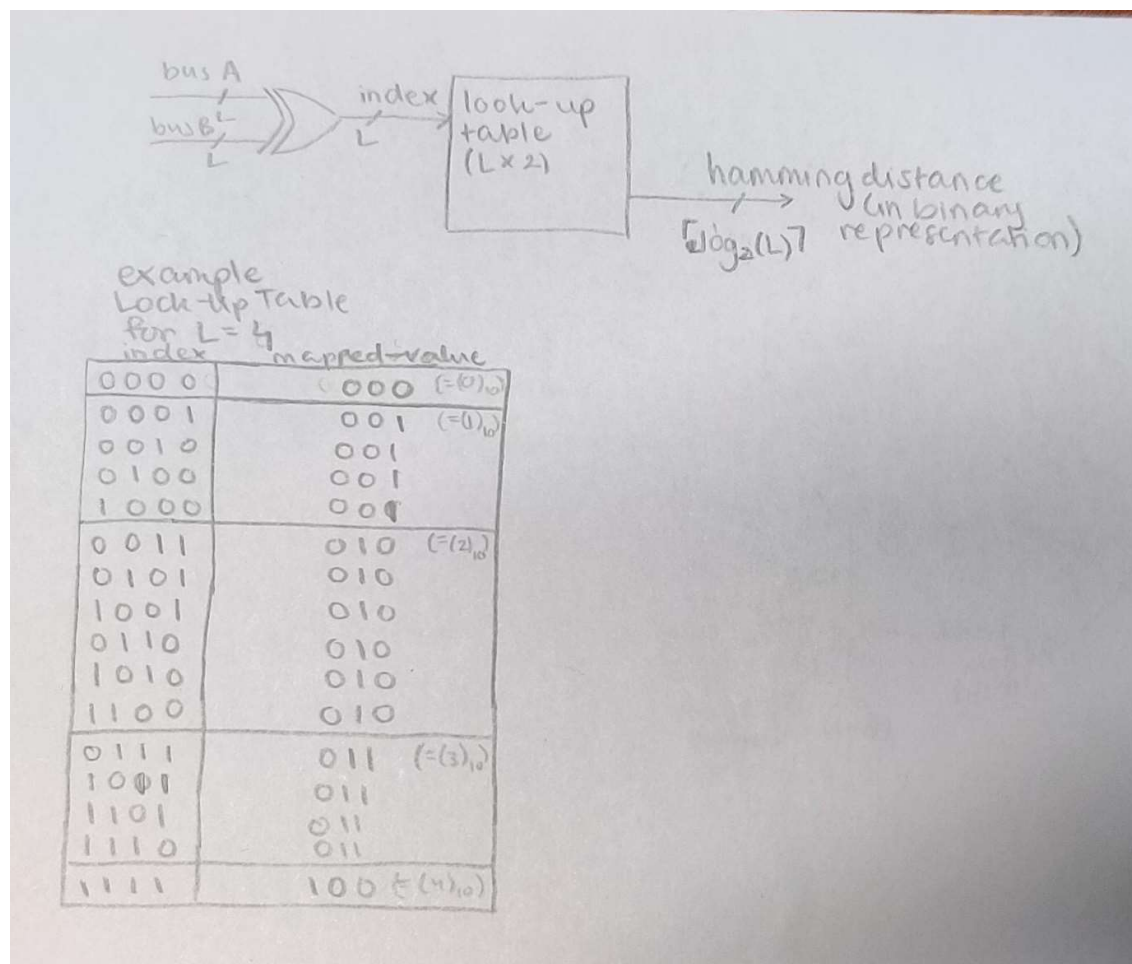 bus A
L
index
look-up
table
(L x 2)
bus B
L
L
hamming distance
(in binary
representation)
⌈log₂(L)⌉
example
Look-Up Table
for L = 4
index mapped-value
0000 000 (=(0)₁₀)
0001 001 (=(1)₁₀)
0010 001
0100 001
1000 001
0011 010 (=(2)₁₀)
0101 010
1001 010
0110 010
1010 010
1100 010
0111 011 (=(3)₁₀)
1011 011
1101 011
1110 011
1111 100 (=(4)₁₀)